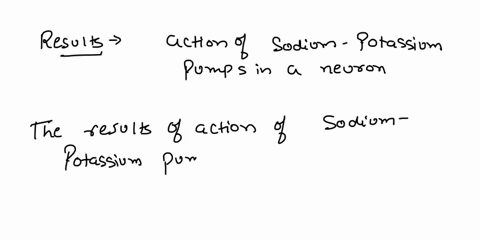 Results → action of Sodium-Potassium
Pumps in a neuron
The results of action of Sodium-
Potassium pum